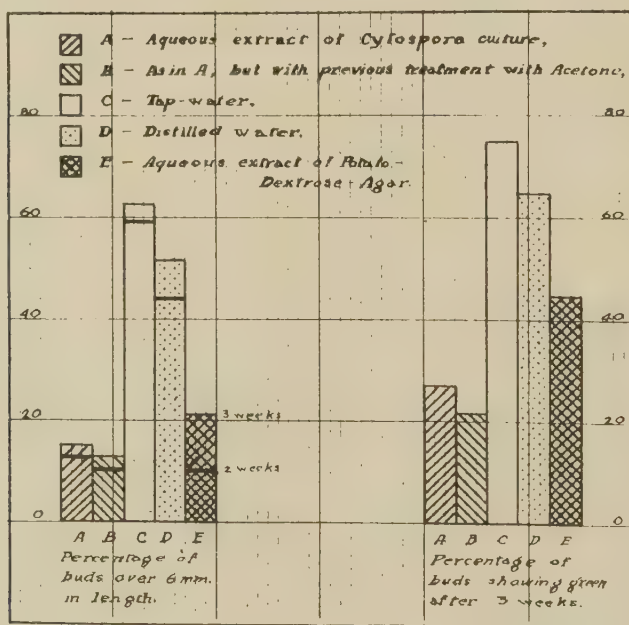 A – Aqueous extract of Cytospora culture,
B – As in A, but with previous treatment with Acetone,
C – Tap-water,
D – Distilled water,
E – Aqueous extract of Potato-
Dextrose-Agar.
80
60
40
20
0
80
60
40
20
0
3 weeks
2 weeks
A B C D E
Percentage of
buds over 6mm.
in length.
A B C D E
Percentage of
buds showing green
after 3 weeks.